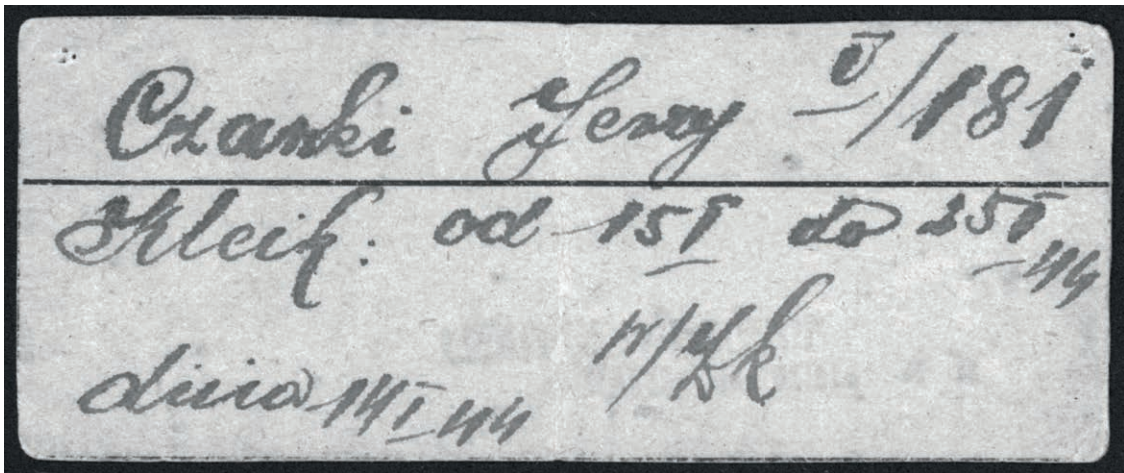 Czarski Jerzy V/181
od 15 I do 25 I 44
dnia 14 I 44